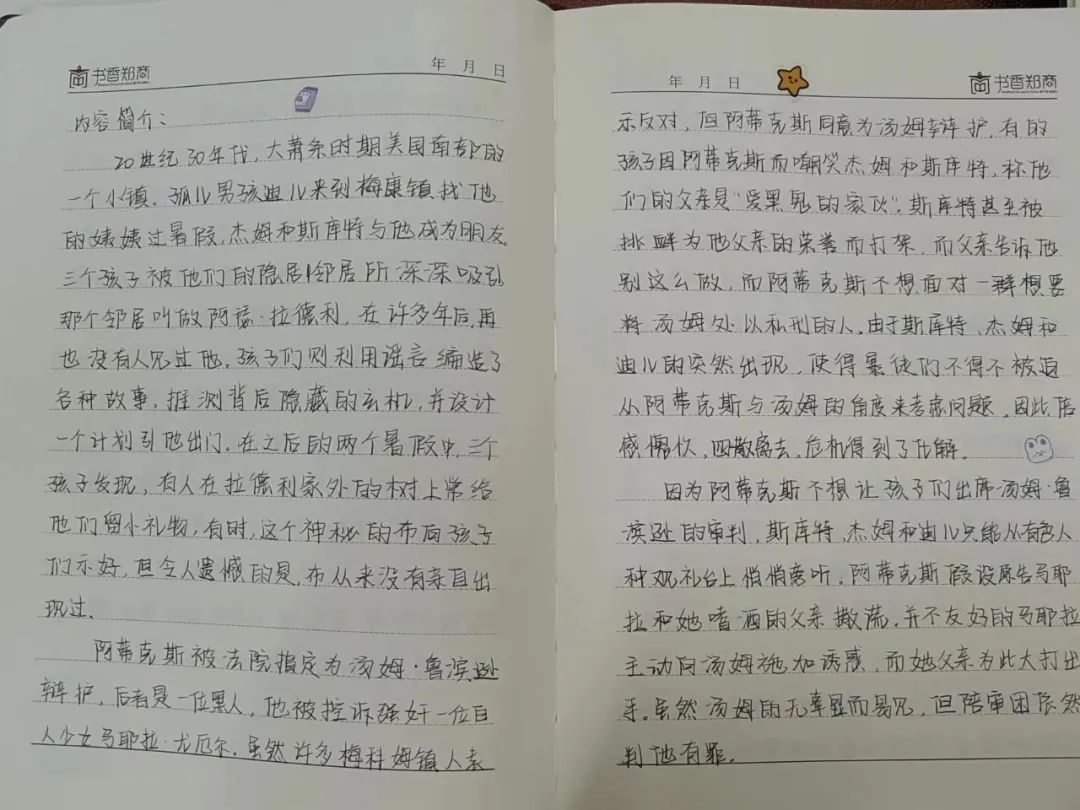 书香郑商
年 月 日
内容简介：
20世纪30年代，大萧条时期美国南部的
一个小镇。孤儿男孩迪儿来到梅康镇找他
的姨姨过暑假，杰姆和斯库特与他成为朋友。
三个孩子被他们的隐居邻居所深深吸引
那个邻居叫做阿瑟·拉德利，在许多年后，再
也没有人见过他。孩子们则利用谣言编造了
各种故事，推测背后隐藏的玄机，并设计
一个计划引他出门。在之后的两个暑假中，三个
孩子发现，有人在拉德利家外的树上常给
他们留小礼物，有时，这个神秘的布向孩子
们示好，但令人遗憾的是，布从来没有亲自出
现过。
阿蒂克斯被法院指定为汤姆·鲁滨逊
辩护，后者是一位黑人，他被控诉强奸一位白
人少女马耶拉·尤厄尔。虽然许多梅科姆镇人表
年 月 日
书香郑商
示反对，但阿蒂克斯同意为汤姆辩护，有的
孩子因阿蒂克斯而嘲笑杰姆和斯库特，称他
们的父亲是“爱黑鬼的家伙”。斯库特甚至被
挑衅为他父亲的荣誉而打架，而父亲告诉他
别这么做，而阿蒂克斯不想面对一群想要
将汤姆处以私刑的人。由于斯库特、杰姆和
迪儿的突然出现，使得暴徒们不得不被迫
从阿蒂克斯与汤姆的角度来考虑问题，因此倍
感愧疚，四散离去，危机得到了化解。
因为阿蒂克斯不想让孩子们出席汤姆·鲁
滨逊的审判，斯库特、杰姆和迪儿只能从有色人
种观礼台上悄悄旁听，阿蒂克斯假设原告马耶
拉和她嗜酒的父亲撒谎，并不友好的马耶拉
主动向汤姆施加诱惑，而她父亲为此大打出
手。虽然汤姆的无辜显而易见，但陪审团依然
判他有罪。